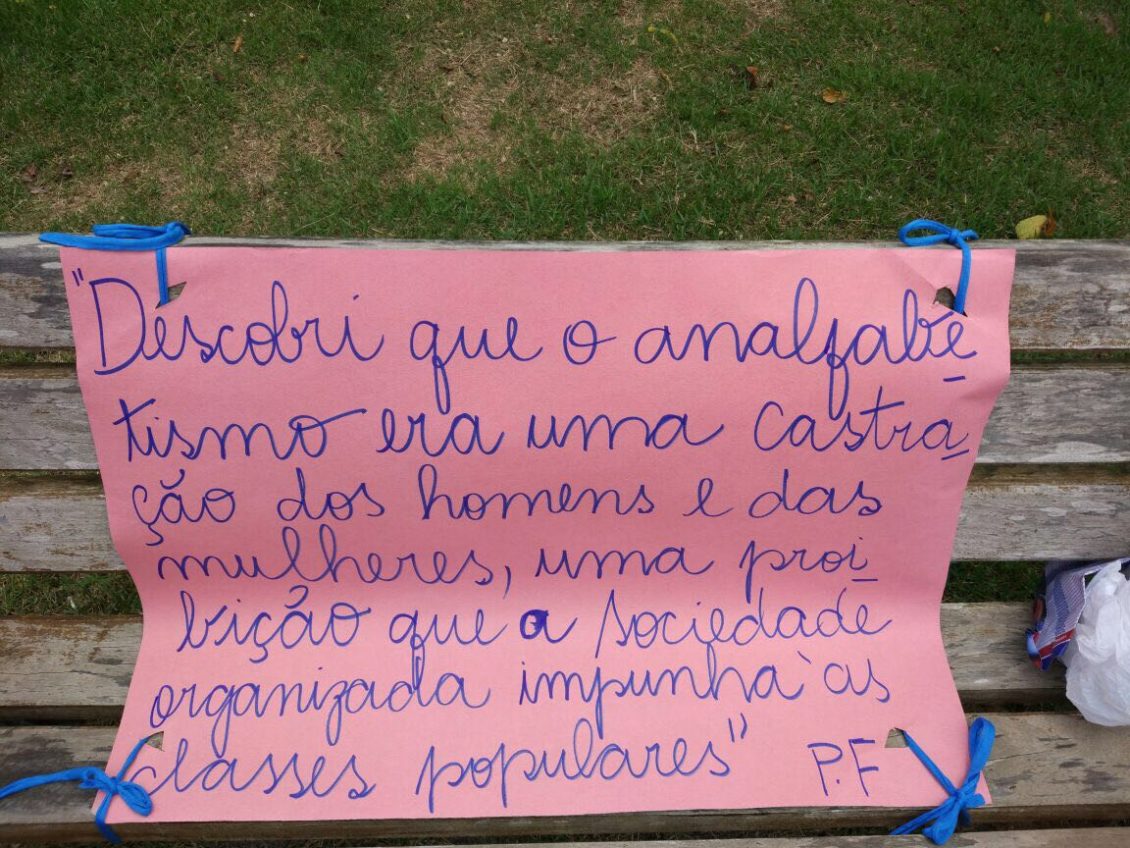 "Descobri que o analfabe
tismo era uma castra
ção dos homens e das
mulheres, uma proi
bição que a sociedade
organizada impunha às
classes populares" P.F